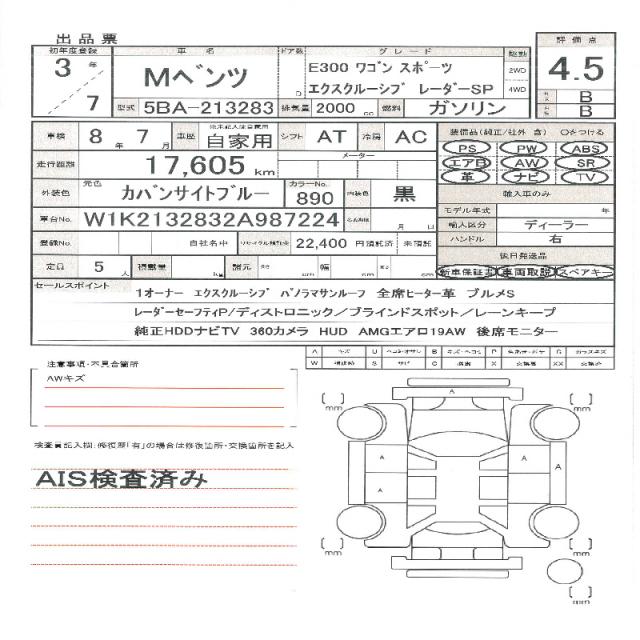 出品票
初年度登録 車名 ドア数 グレード 駆動 評価点
3 年 7
Mベンツ D
E300 ワゴン スポーツ 2WD
エクスクルーシブ レーダーSP 4WD
4.5
型式 5BA-213283 排気量 2000 cc 燃料 ガソリン
B
B
車検 8 年 7 月 車歴 自家用 シフト AT 冷房 AC
装備品(純正/社外 含) 〇をつける
PS PW ABS
エアB AW SR
革 ナビ TV
走行距離 17,605 km メーター
外装色 元色 カバンサイトブルー カラーNo. 890 内装色 黒
輸入車のみ
モデル年式 年
車台No. W1K2132832A987224 月 日
輸入区分 ディーラー
登録No. 自社名中 リサイクル預託金 22,400 円預託済 未預託
ハンドル 右
後日発送品
定員 5 人 積載量 kg 諸元 長さ cm 幅 cm 高さ cm
新車保証書 車両取説 スペアキー
セールスポイント
1オーナー エクスクルーシブ パノラマサンルーフ 全席ヒーター革 ブルメS
レーダーセーフティP/ディストロニック/ブラインドスポット/レーンキープ
純正HDDナビTV 360カメラ HUD AMGエアロ19AW 後席モニター
A キズ U ヘコミ・オサレ B キズ・ヘコミ P G ガラスキズ
W S サビ C 腐蝕 X 交換要 XX 交換済
注意事項・不具合箇所
AWキズ
検査員記入欄:修復歴「有」の場合は修復箇所・交換箇所を記入
AIS検査済み
A
A
A
A
mm
mm
mm
mm
mm